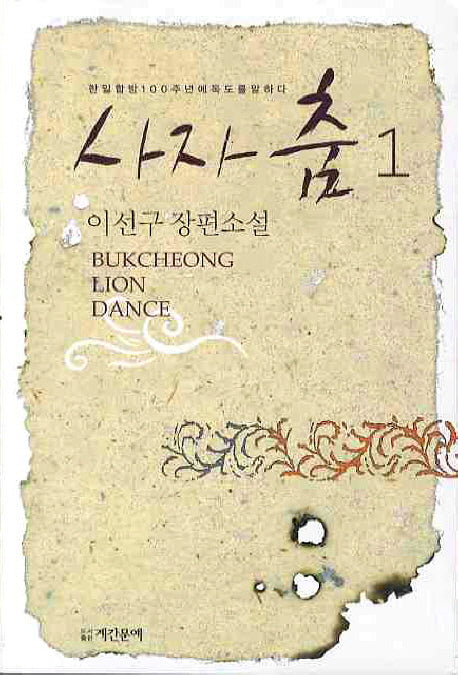 한일합방100주년에독도를말하다
사자춤 1
이선구 장편소설
BUKCHEONG
LION
DANCE
도서출판 계간문예